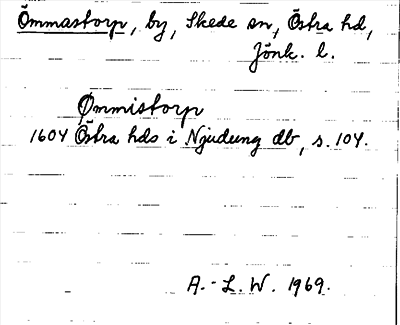 Ömmastorp, by, Skede sn, Östra hd,
Jönk. l.
Ømmistorp
1604 Östra hds i Njudung db, s. 104.
A.-L.W. 1969.